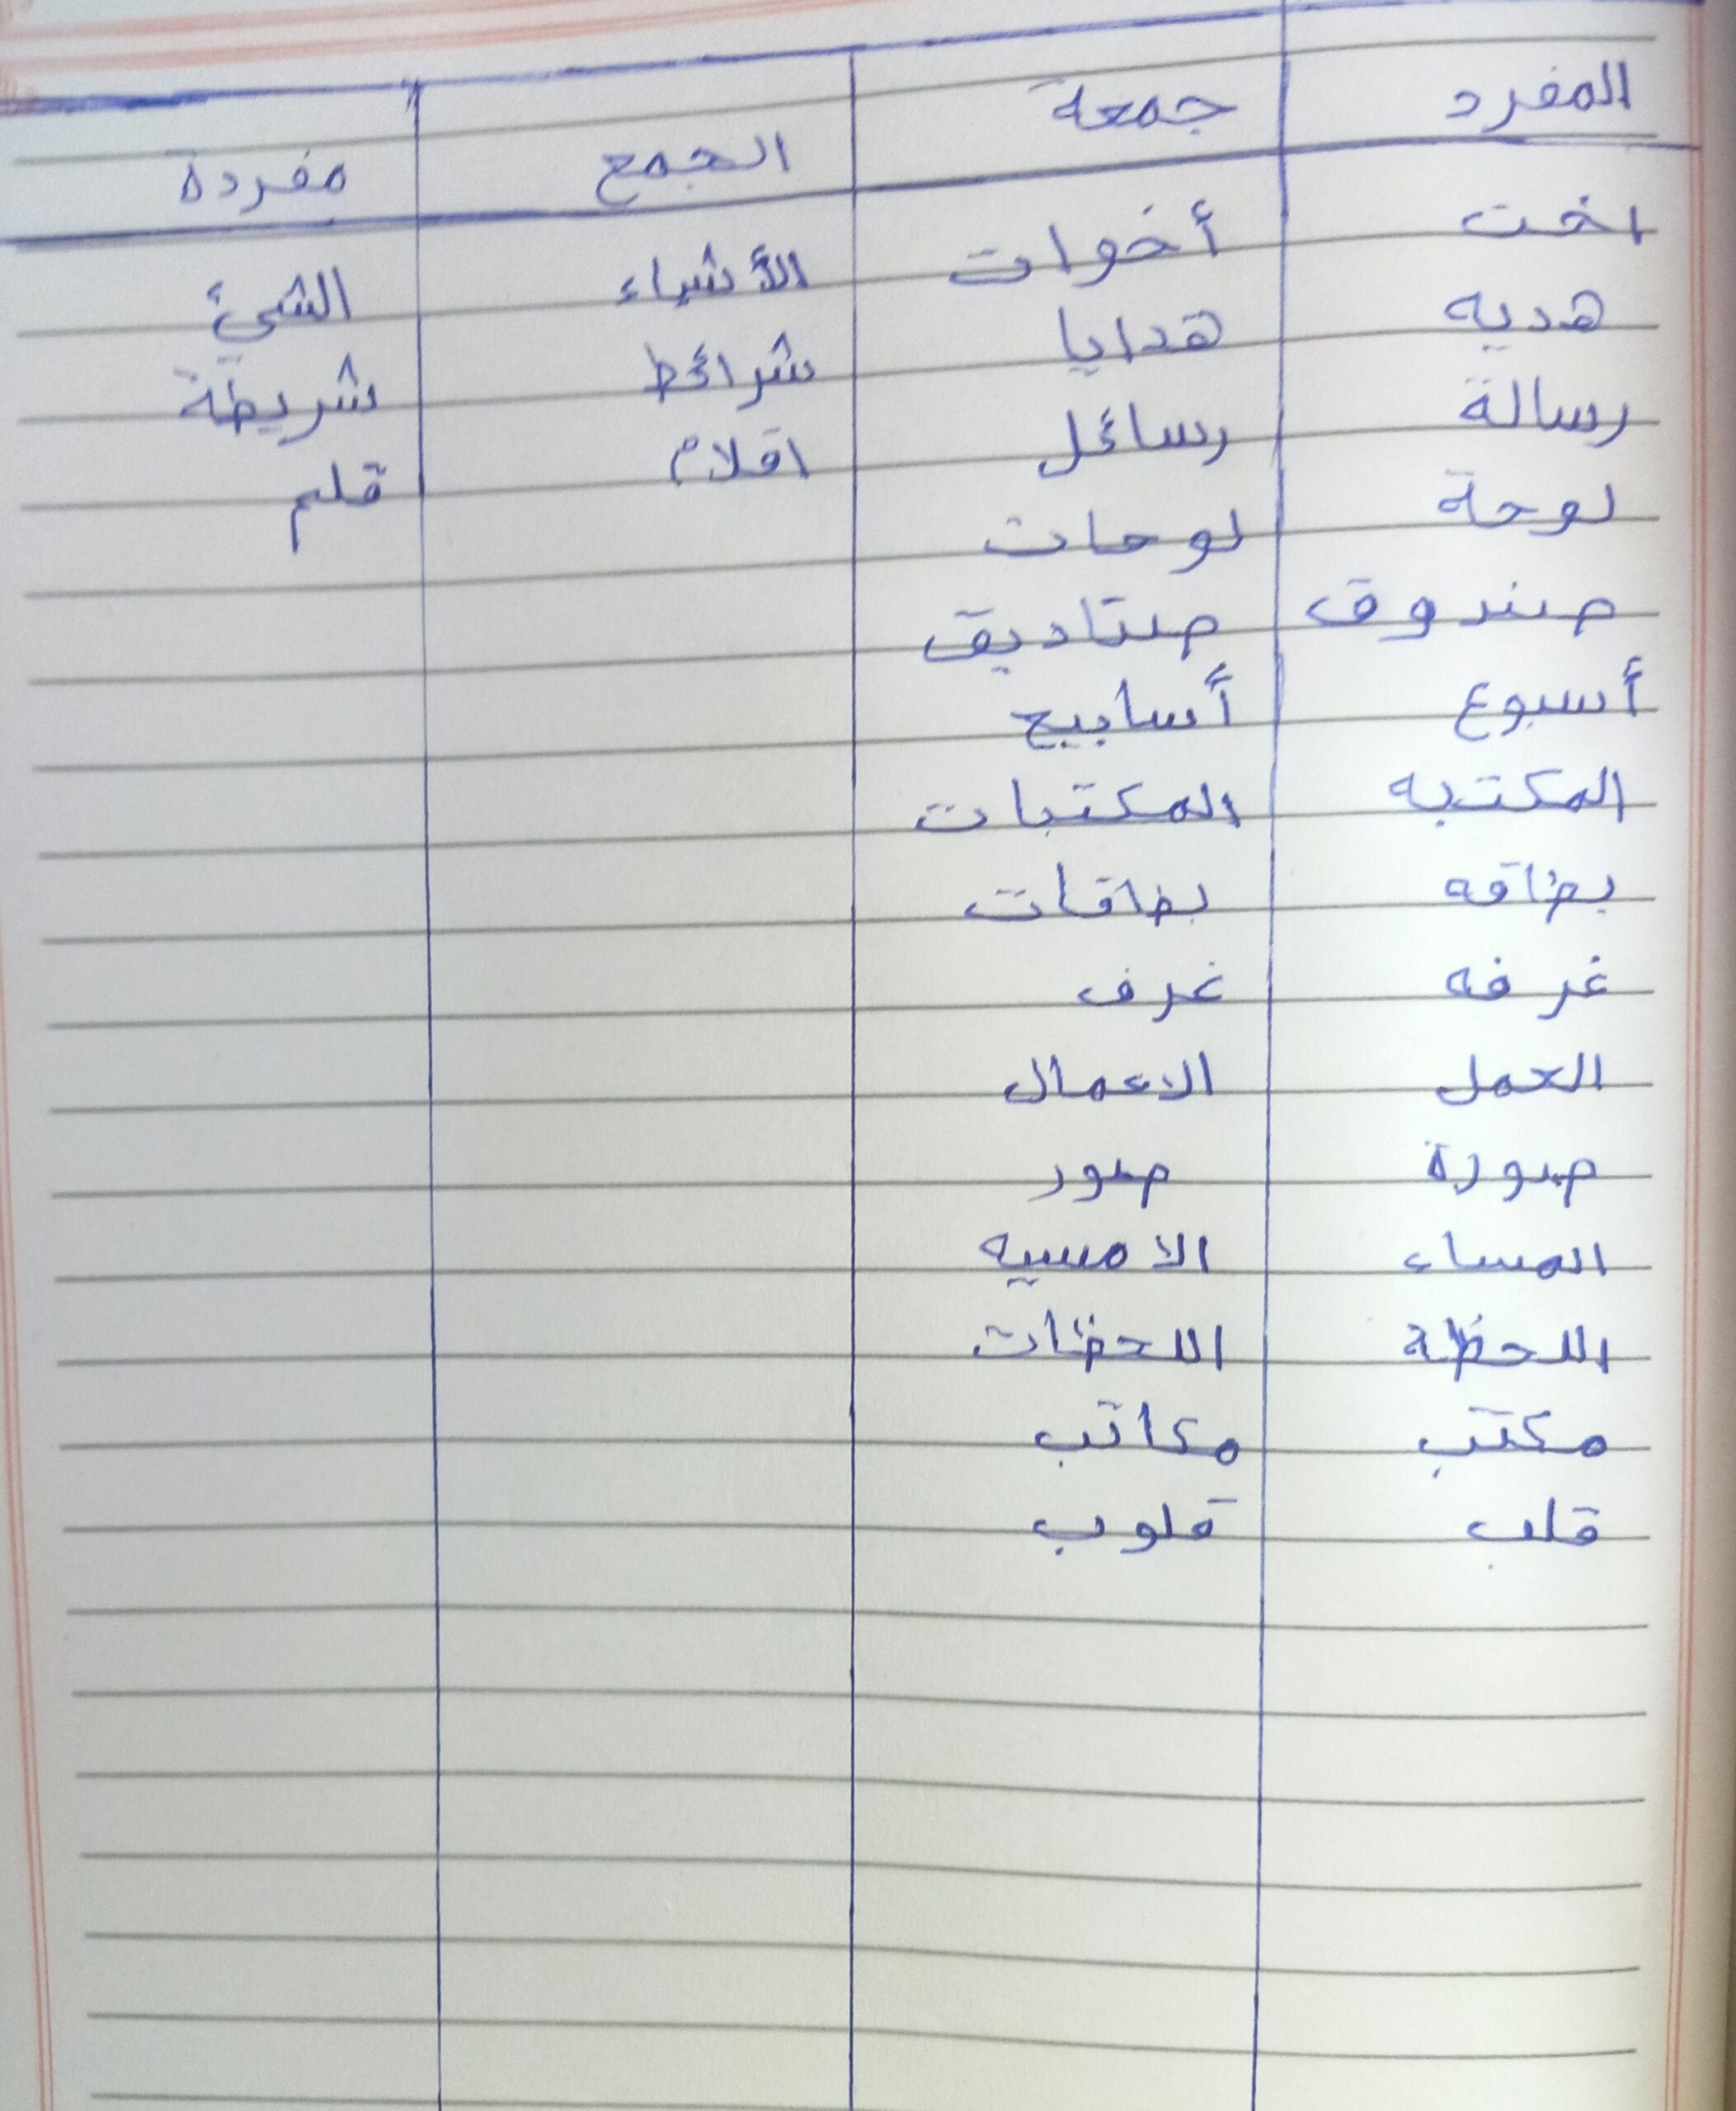 المفرد جمعة الجمع مفردة
اخت أخوات الأشياء الشيئ
هديه هدايا شرائط شريطة
رسالة رسائل اقلام قلم
لوحة لوحات
صندوق صناديق
أسبوع أسابيع
المكتبه المكتبات
بطاقه بطاقات
غرفه غرف
العمل الاعمال
صورة صور
المساء الامسيه
اللحظة اللحظات
مكتب مكاتب
قلب قلوب